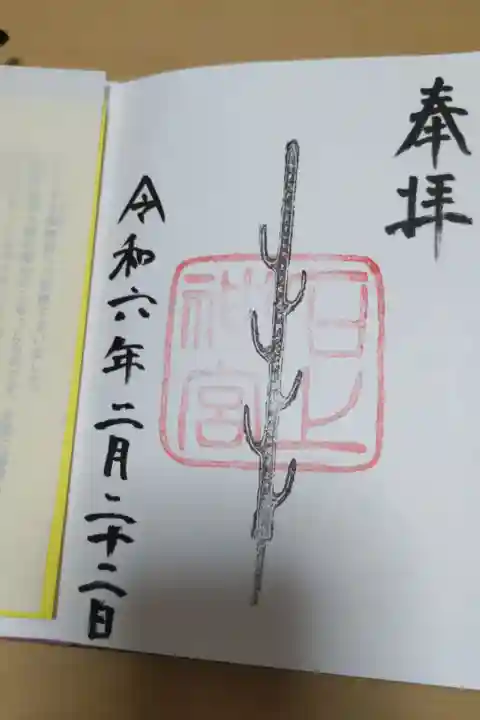 奉拝
石上
神宮
令和六年二月二十二日